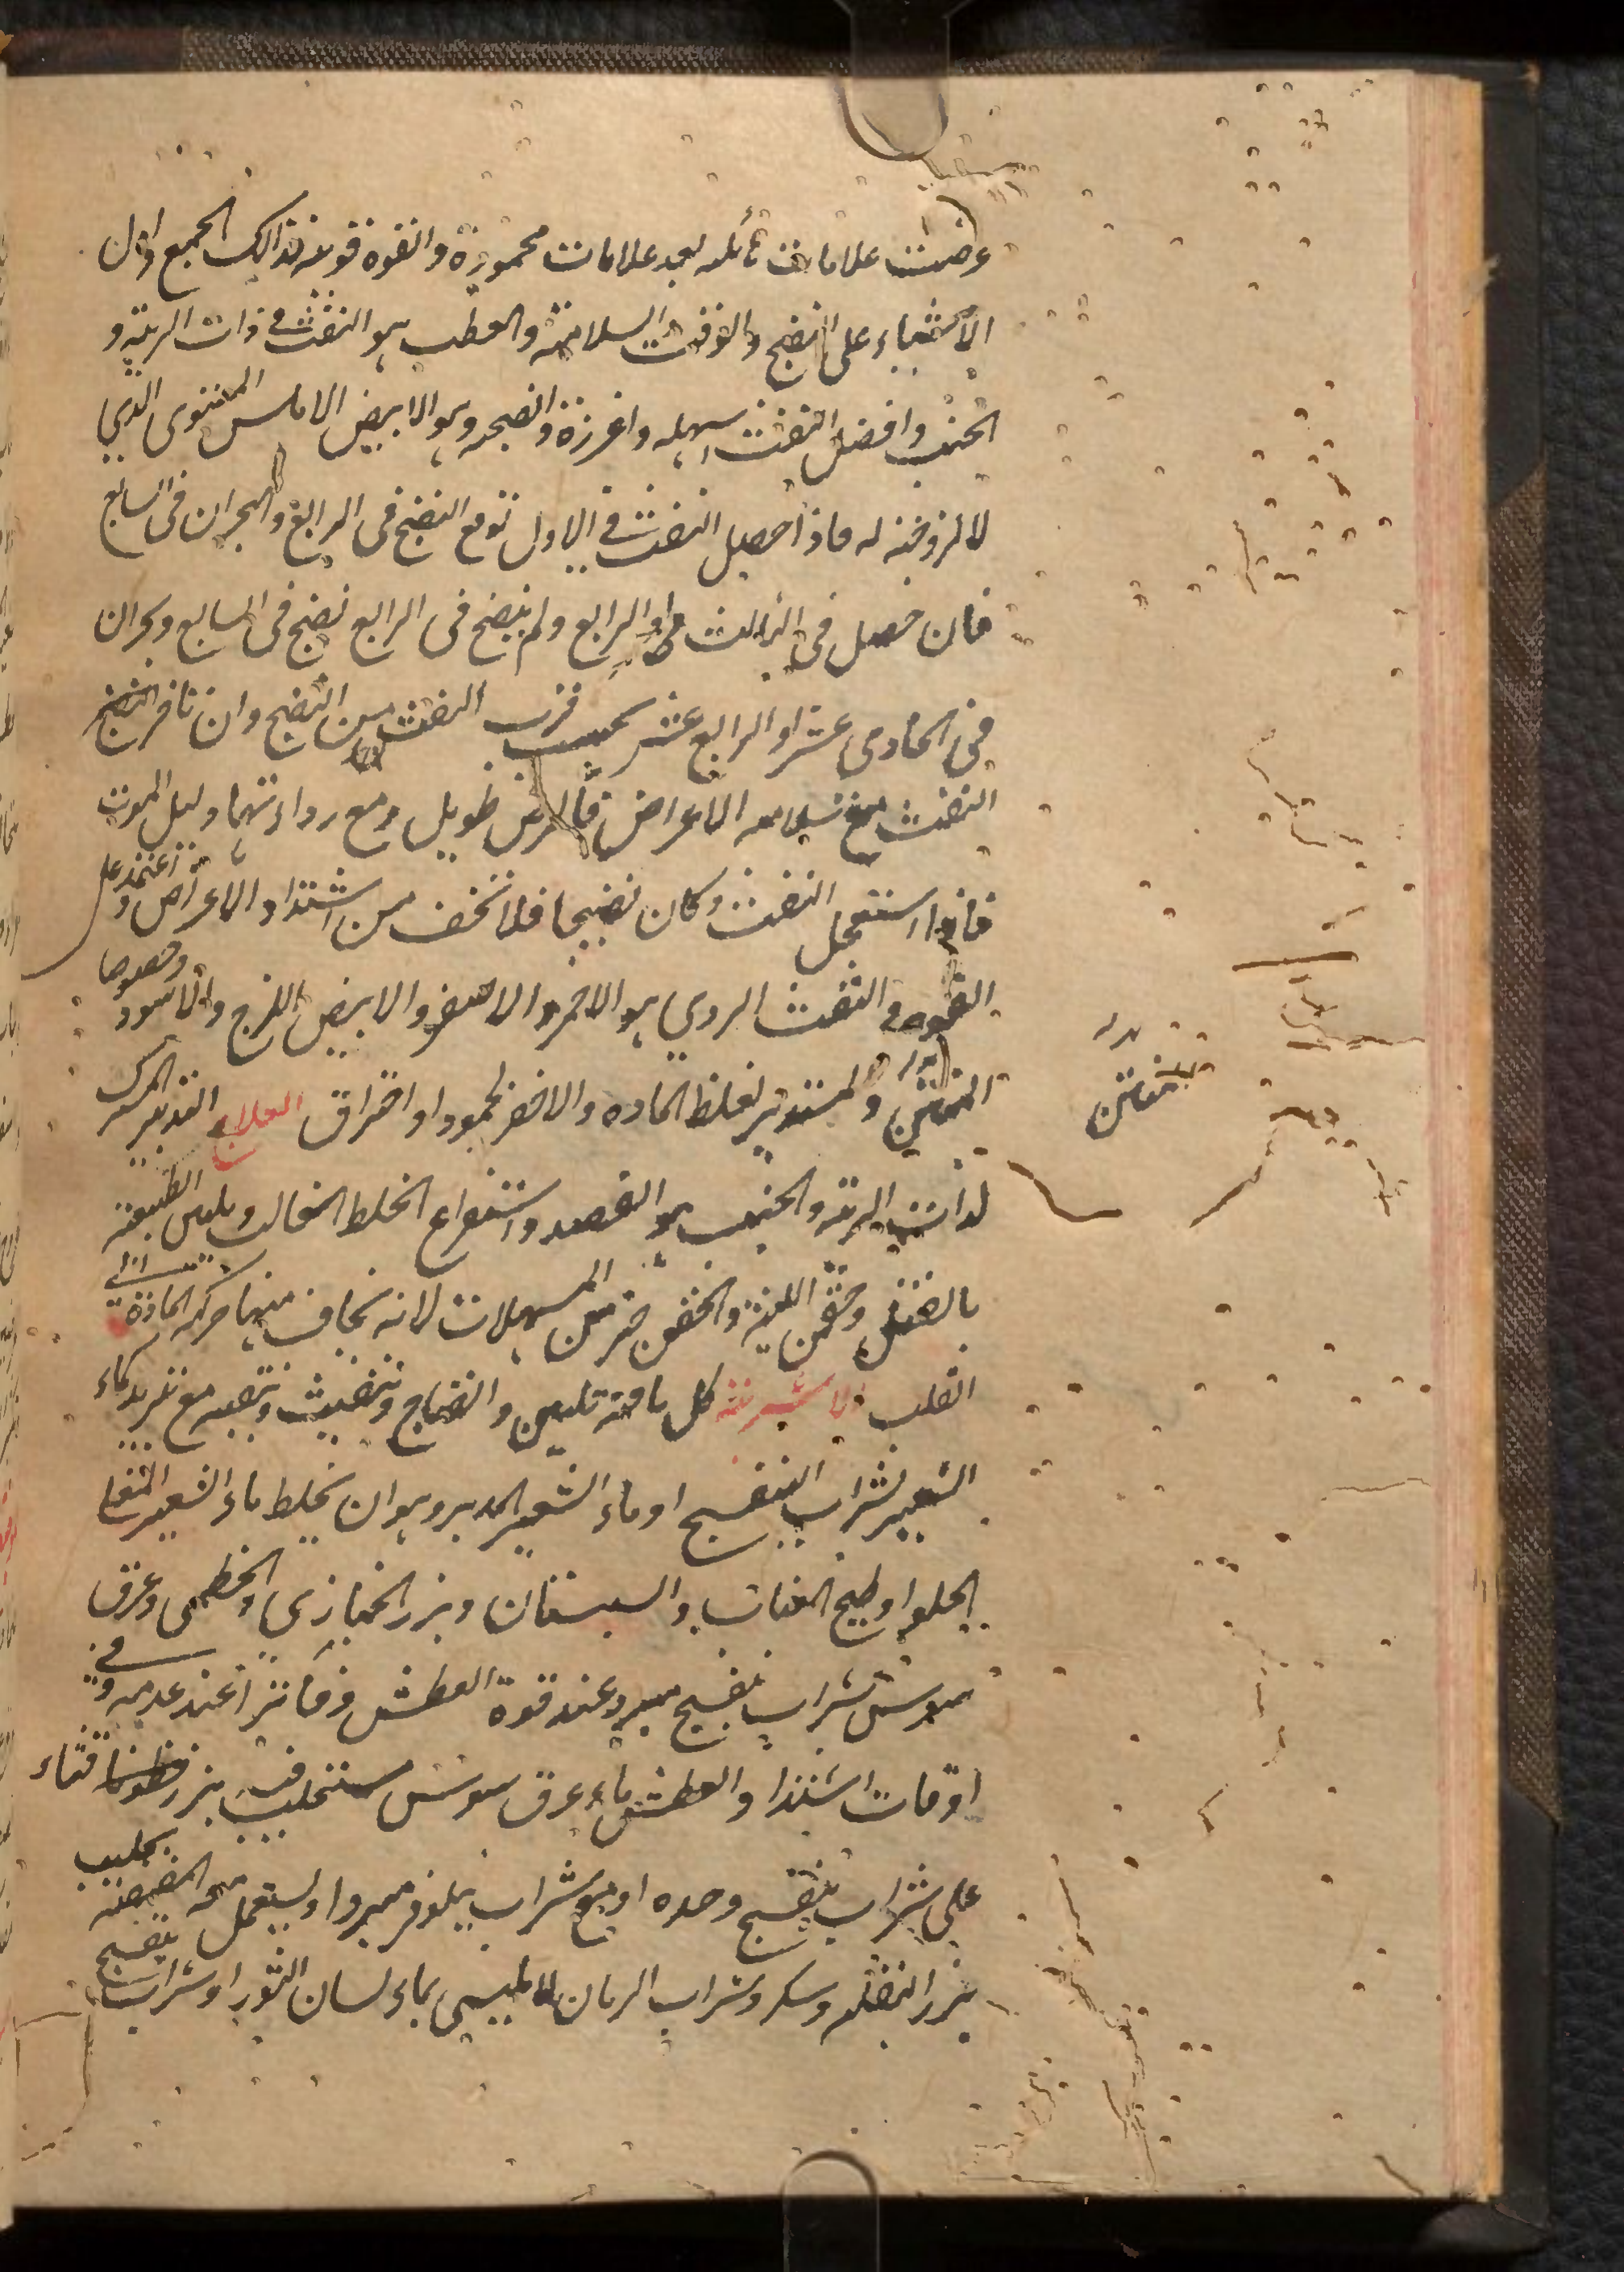 عرضت علامات هائله بعد علامات محمودة والقوه قويه فذلك لجمع وادل
الاشياء على النضج والوقت السلامة والعطب هو النفث فى ذات الرية و
الجنب وافضل النفث اسهله واغزرة وانضجه وهو الابيض الاملس المستوى الذي
لا لزوجة له فاذا حصل النفث فى الاول توقع النضج فى الرابع والبحران فى السابع
فان حصل فى الثالث او الرابع ولم ينضج فى الرابع نضج فى السابع وبحران
فى الحادى عشر او الرابع عشر بحسب قرب النفث من النضج وان تاخر النضج
النفث مع سلامه الاعراض فالمرض طويل ومع رداءتها دليل الموت
فاذا استعجل النفث وكان نضيجا فلا تخف من اشتداد الاعراض واعتمد على
القوه والنفث الردي هو الاحمر والاصفر والابيض اللزج والاسود وخصوصا
المنتن والمستدير لغلظ الماده والاخضر لجمود او احتراق العلاج التدبير المشترك
لذات الرية والجنب هو الفصد واستفراغ الخلط الغالب وتليين الطبيعة
بالفتل وحقن اللينة والحقن خير من المسهلات لانه يخاف منها حركه المادة الى
القلب الاشربة كل ما فيه تليين وانضاج وتنفيث وتقيه مع تبريد كماء
الشعير بشراب البنفسج او ماء الشعير المدبر وهو ان يخلط ماء الشعير المغلى
الحلو او طبيخ العناب والسبستان وبزر الخبازى والخطمى وعرق
سوس بشراب بنفسج مبرد عند قوة العطش وفاترا عند عدمه وفى
اوقات اشتداد العطش ماء عرق سوس مستحلب فيه بزر قثاء
على شراب بنفسج وحده او مع شراب نيلوفر مبردا ويستعمل معه المضمضة بحليب
بزر البقله وسكر وشراب الرمان الاطيسى بماء لسان الثور او شراب بنفسج